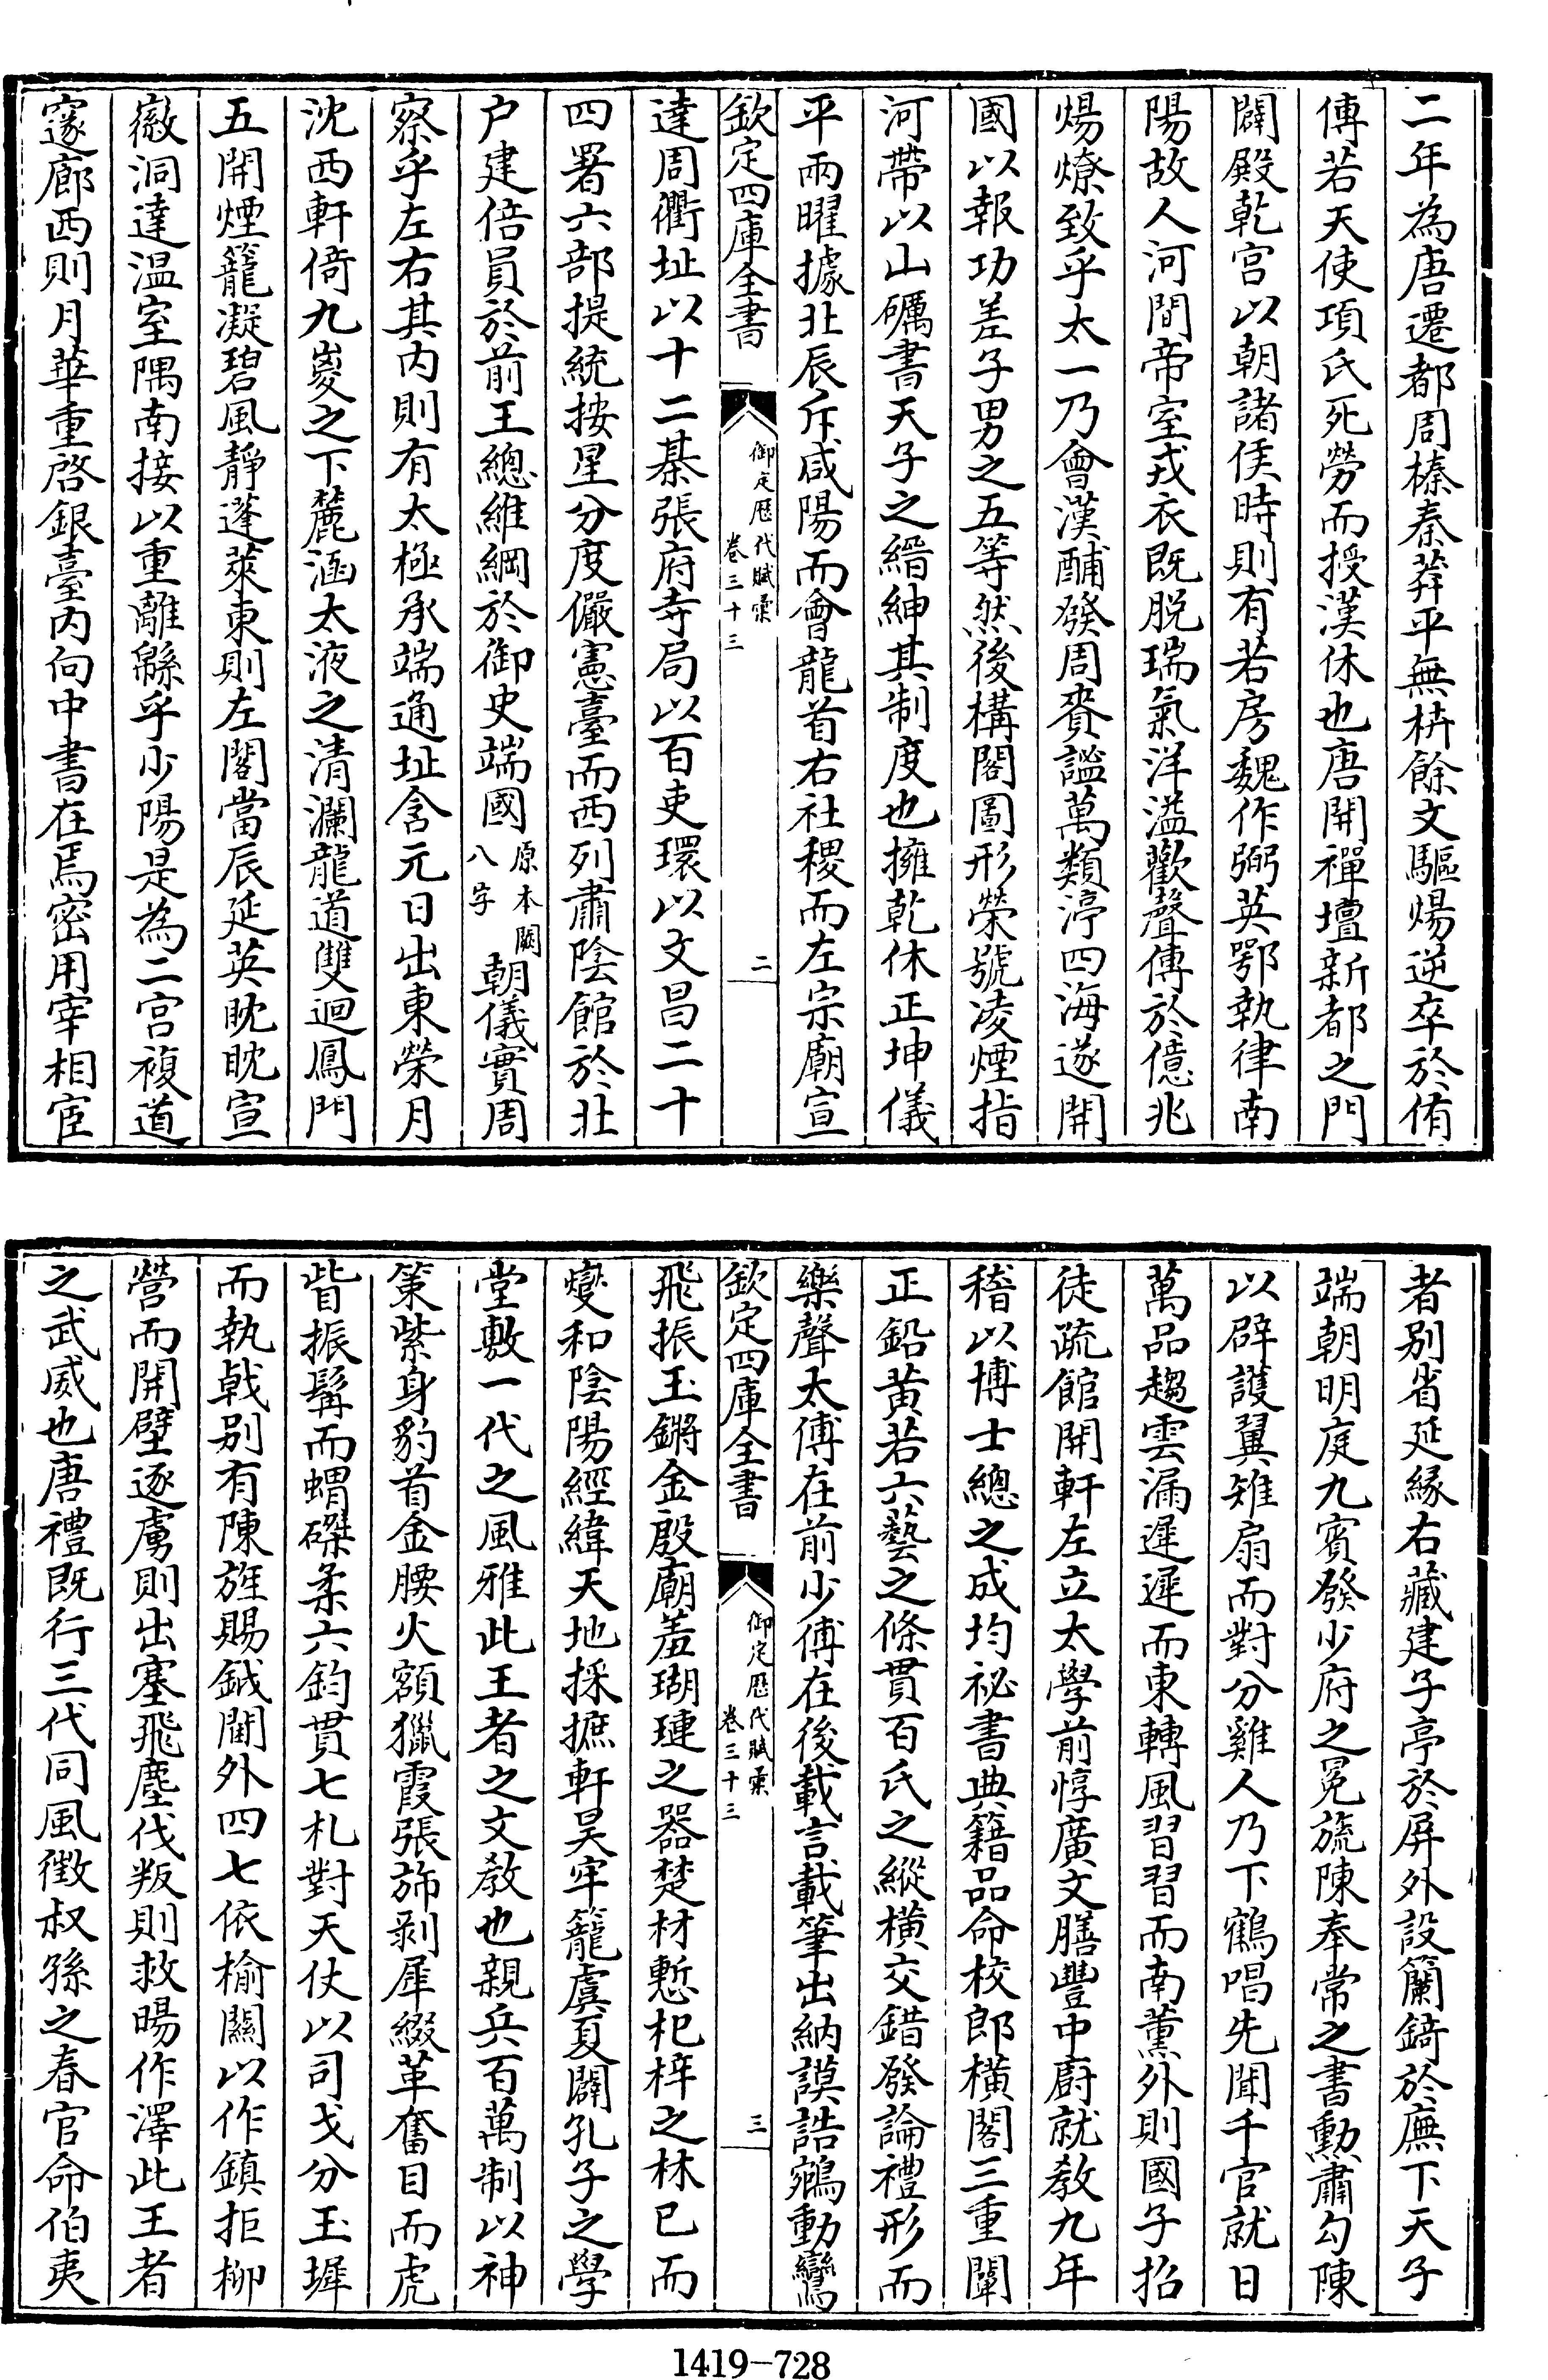 二年為唐遷都周榛秦莽平無枿餘文驅煬逆卒於侑
傅若天使項氏死勞而授漢休也唐開禪壇新都之門
闢殿乾宫以朝諸侯時則有若房魏作弼英鄂執律南
陽故人河間帝室戎衣既脱瑞氣洋溢歡聲傳於億兆
煬燎致乎太一乃會漢酺發周賚謐萬類渟四海遂開
國以報功差子男之五等然後構閣圖形榮號凌煙指
河帶以山礪書天子之縉紳其制度也擁乾休正坤儀
平兩曜據北辰斥咸陽而會龍首右社稷而左宗廟宣
欽定四庫全書
御定歷代賦彙
卷三十三
二
達周衢址以十二棊張府寺局以百吏環以文昌二十
四署六部提統按星分度儼憲臺而西列肅陰館於北
户建倍員於前王總維綱於御史端國原本闕八字朝儀實周
察乎左右其内則有太極承端通址含元日出東榮月
沈西軒倚九嵏之下麓涵太液之清瀾龍道雙迴鳳門
五開煙籠凝碧風靜蓬萊東則左閣當辰延英耽耽宣
徽洞達温室隅南接以重離緜乎少陽是為二宫複道
邃廊西則月華重啓銀臺内向中書在焉密用宰相宦
者别省延緣右藏建子亭於屏外設籣錡於廡下天子
端朝明庭九賓發少府之冕旒陳奉常之書勲肅勾陳
以辟護翼雉扇而對分雞人乃下鶴唱先聞千官就日
萬品趨雲漏遲遲而東轉風習習而南薫外則國子招
徒疏館開軒左立太學前惇廣文膳豐中厨就教九年
稽以博士總之成均祕書典籍品命校郎横閣三重闡
正鉛黄若六藝之條貫百氏之縱横交錯發論禮形而
樂聲太傅在前少傅在後載言載筆出納謨誥鵷動鸞
欽定四庫全書
御定歷代賦彙
卷三十三
三
飛振玉鏘金殷廟羞瑚璉之器楚材慙杞梓之林已而
燮和陰陽經緯天地採摭軒昊牢籠虞夏闢孔子之學
堂敷一代之風雅此王者之文教也親兵百萬制以神
策紫身豹首金腰火額獵霞張斾剥犀綴革奮目而虎
眥振髯而蝟磔柔六鈞貫七札對天仗以司戈分玉墀
而執戟别有陳旌賜鉞閫外四七依榆關以作鎮拒柳
營而開壁逐虜則出塞飛塵伐叛則救暘作澤此王者
之武威也唐禮既行三代同風徴叔孫之春官命伯夷
1419-728